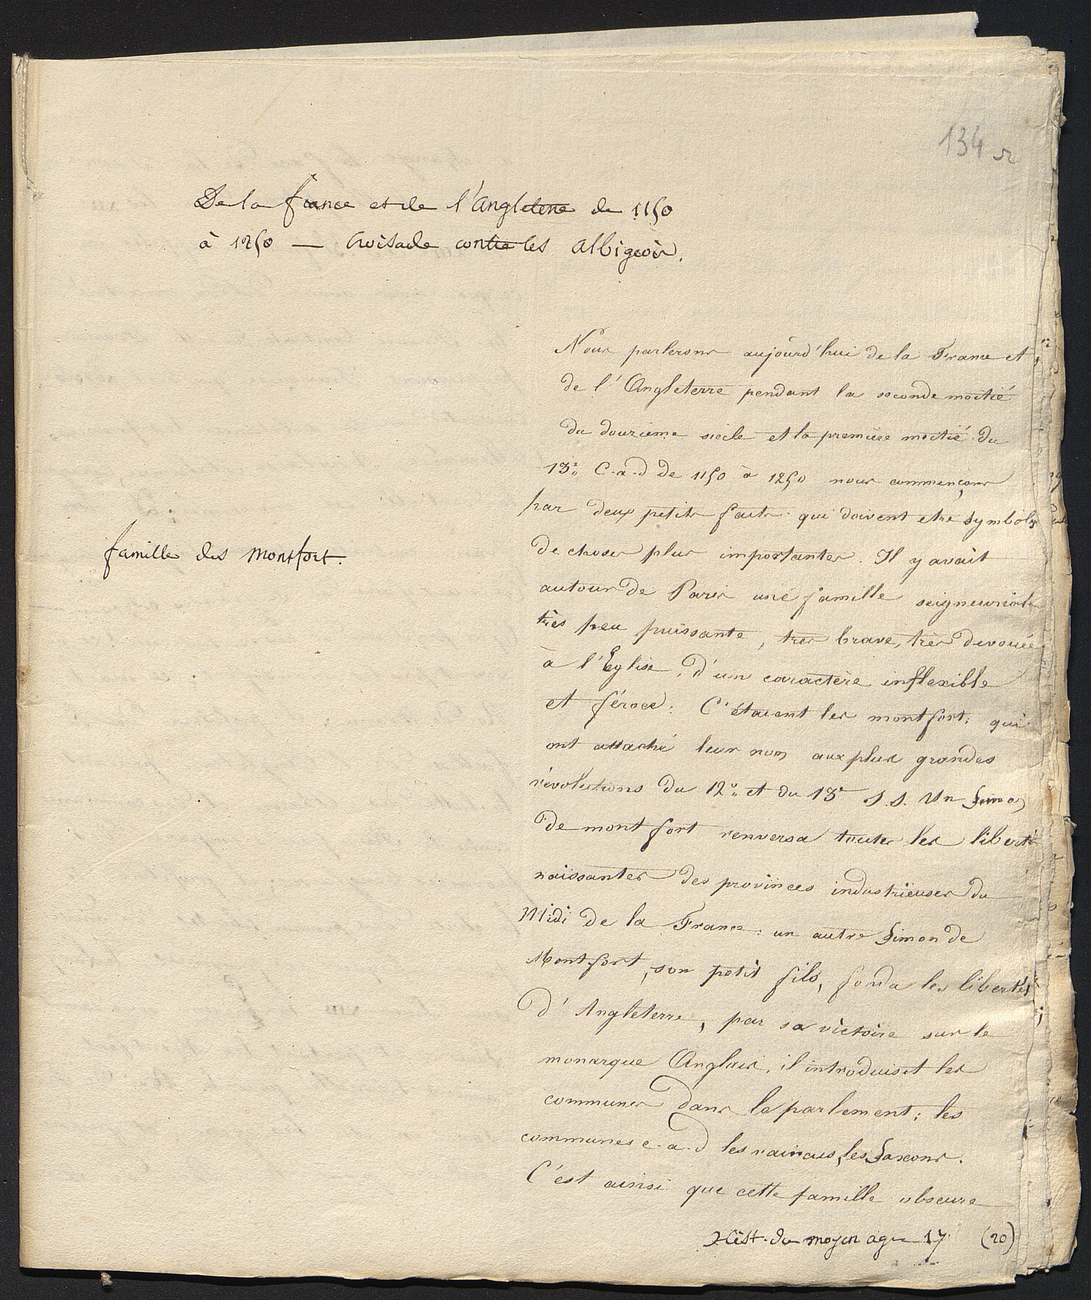 134 r
De la france et de l'Angleterre de 1150
à 1250 — Croisade contre les Albigeois.
Nous parlerons aujourd'hui de la France et
de l'Angleterre pendant la seconde moitié
du douzieme siecle et la premiere moitié du
13e. C.a.d de 1150 à 1250 nous commençons
par deux petits faits qui doivent etre symboles
de choses plus importantes. Il y avait
famille des Montfort.
autour de Paris une famille seigneuriale
très peu puissante, tres brave, très devouée
à l'Eglise, d'un caractère inflexible
et féroce. C'étaient les montfort, qui
ont attaché leur nom aux plus grandes
révolutions du 12e. et du 13e S.S. Un Simon
de montfort renversa toutes les libertés
naissantes des provinces industrieuses du
Midi de la France: un autre Simon de
Montfort, son petit fils, fonda les libertés
d'Angleterre, par sa victoire sur le
monarque Anglais, il introduisit les
communes dans le parlement; les
communes c.a.d les vaincus, les Saxons.
C'est ainsi que cette famille obscure
Hist. du moyen age 17 (20)